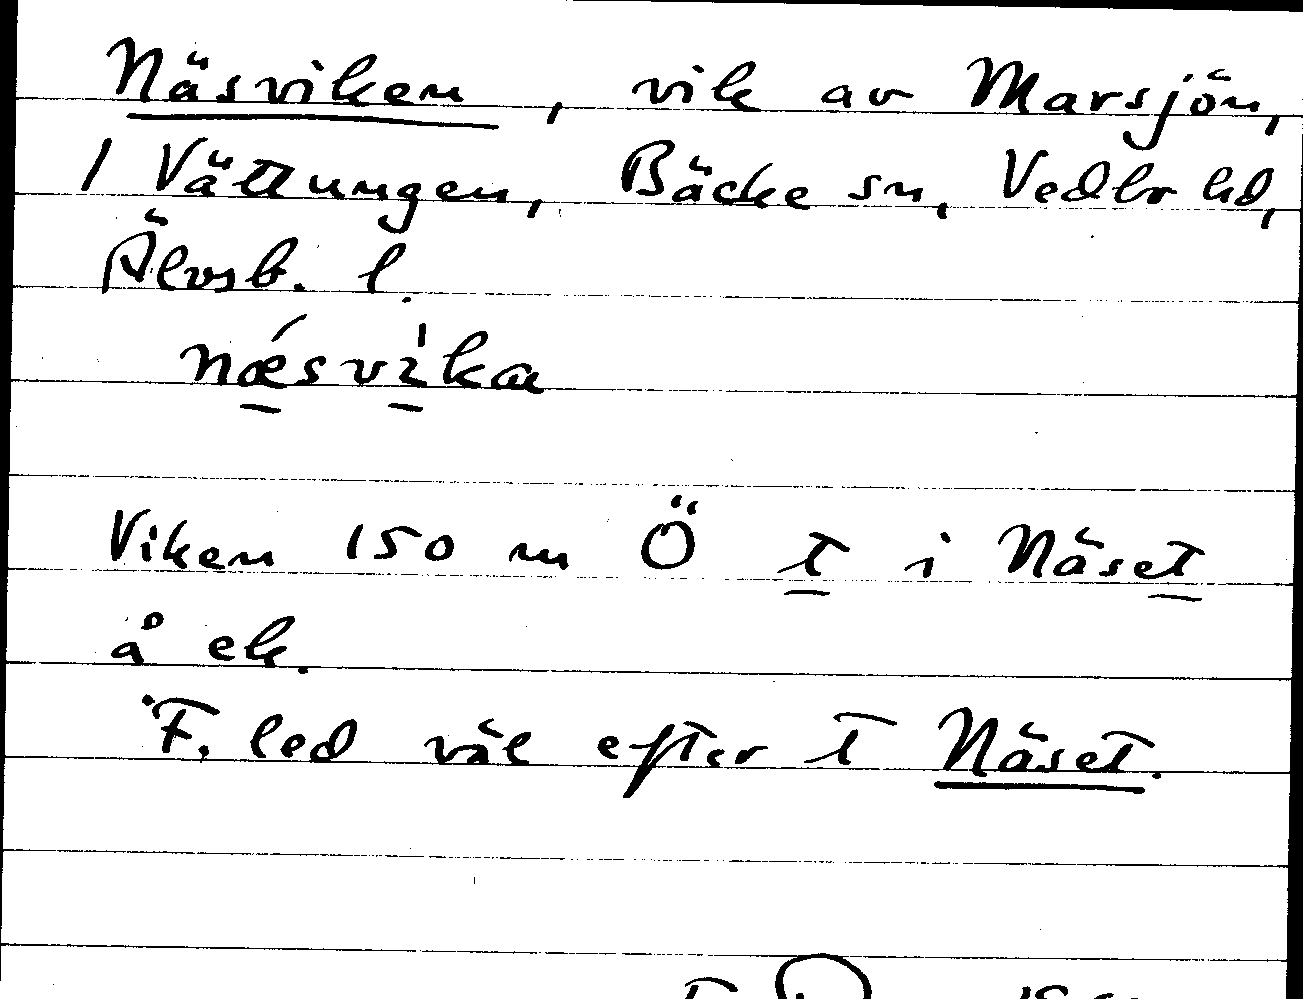 Näsviken, vik av Marsjön,
1 Vättungen, Bäcke sn, Vedbo hd,
Älvsb. l.
nǽsvìka
Viken 150 m Ö t i Näset
å ek.
F. led väl efter T Näset.